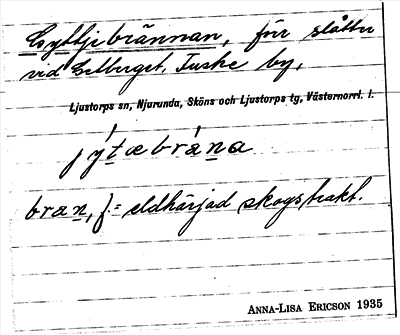 Gyttjebrännan, för slåtter
vid Selberget, Tuske by,
Ljustorps sn, Njurunda, Sköns och Ljustorps tg, Västernorrl. l.
j y̍tæbra̍na
bran, f. = eldhärjad skogstrakt.
ANNA-LISA ERICSON 1935